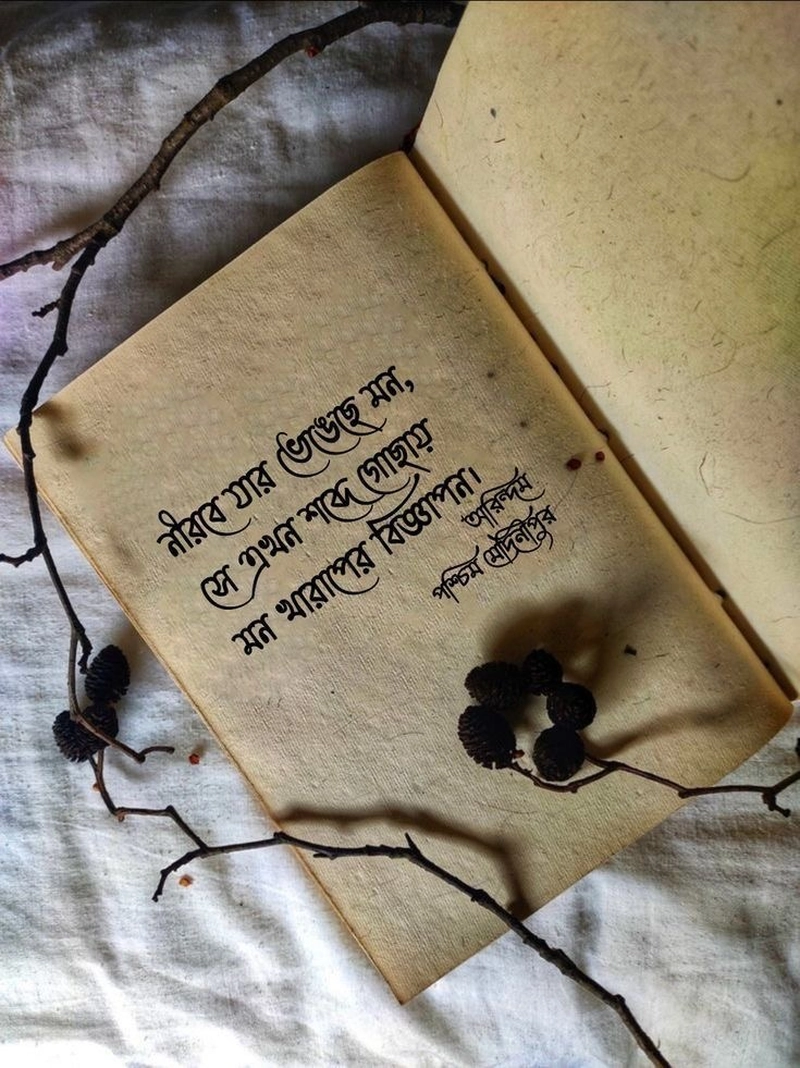 নীরবে যার ভেঙেছে মন,
সে এখন শব্দে গোছায়
মন খারাপের বিজ্ঞাপন।
অরিন্দম
পশ্চিম মেদিনীপুর